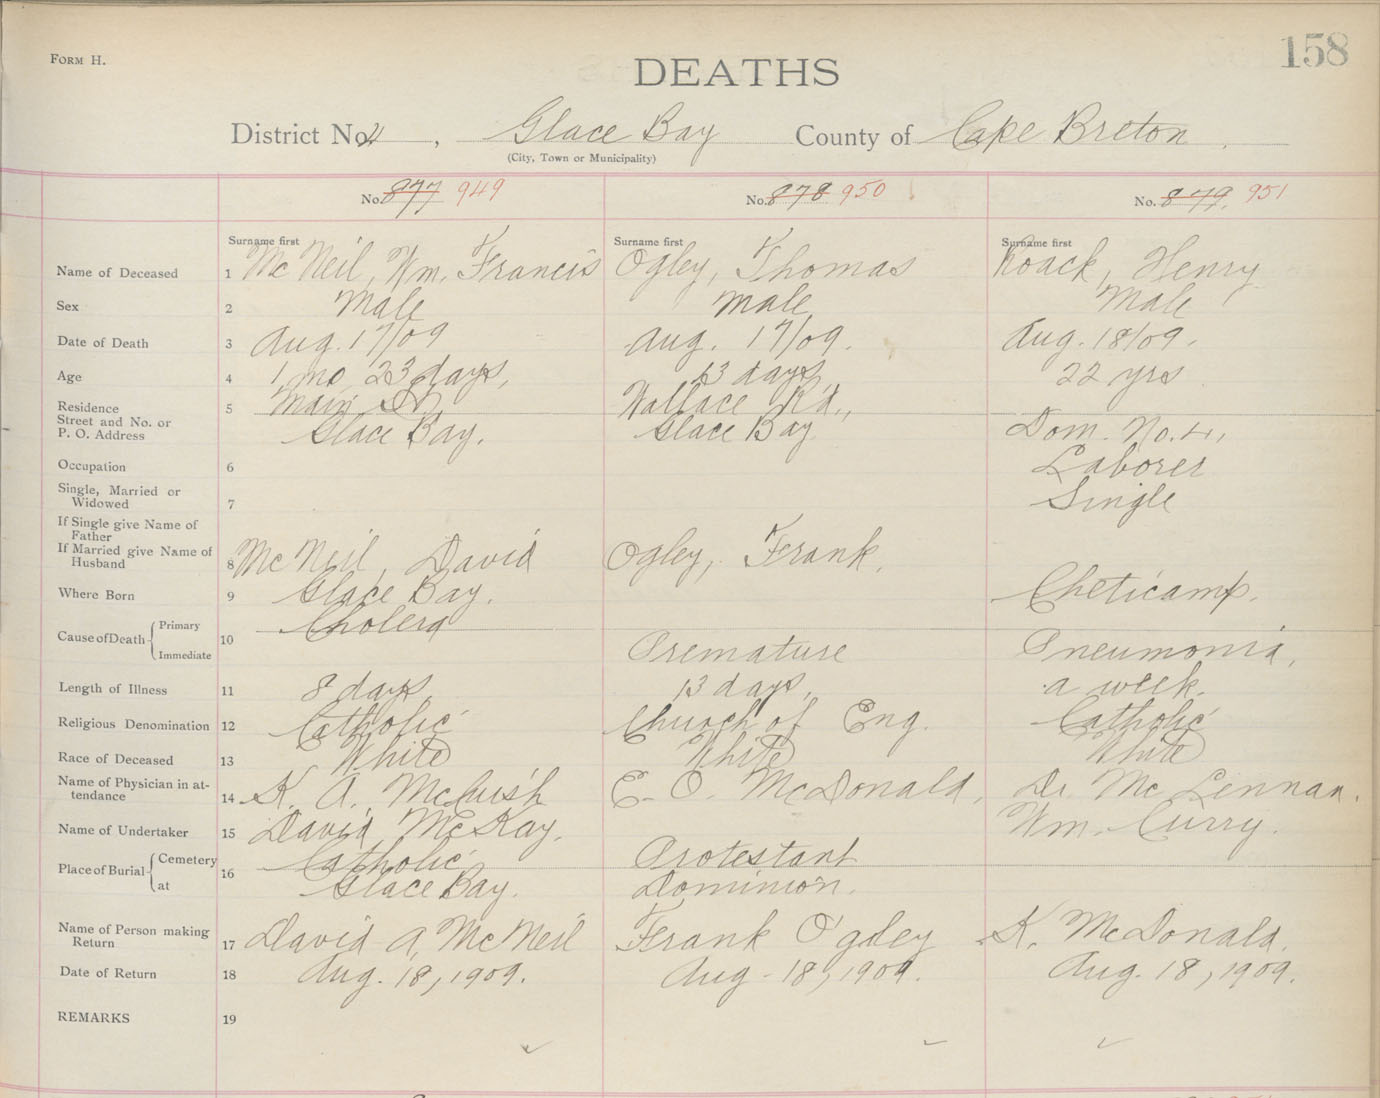 FORM H.
158
DEATHS
District No. 2, Glace Bay County of Cape Breton.
(City, Town or Municipality)
No. 877 949 No. 878 950 No. 879. 951
Surname first Surname first Surname first
Name of Deceased 1 McNeil, Wm. Francis Ogley, Thomas Roack, Henry
Sex 2 Male Male Male
Date of Death 3 Aug. 17/09 Aug. 17/09. Aug. 18/09.
Age 4 1 mo 23 days, 13 days 22 yrs
Residence 5 Main St Wallace Rd.,
Street and No. or
P. O. Address Glace Bay. Glace Bay Dom. No. 4,
Occupation 6 Laborer
Single, Married or
Widowed 7 Single
If Single give Name of
Father
If Married give Name of
Husband 8 McNeil, David Ogley, Frank.
Where Born 9 Glace Bay. Cheticamp.
Cause of Death Primary 10 Cholera
Immediate Premature Pneumonia,
Length of Illness 11 8 days, 13 days, a week.
Religious Denomination 12 Catholic Church of Eng. Catholic
Race of Deceased 13 White White White
Name of Physician in at-
tendance 14 K. A. McCuish E. O. McDonald, Dr. McLennan.
Name of Undertaker 15 David McKay. Wm. Curry.
Place of Burial Cemetery 16 Catholic Protestant
at Glace Bay. Dominion.
Name of Person making
Return 17 David A. McNeil Frank Ogley K. McDonald.
Date of Return 18 Aug. 18, 1909. Aug. 18, 1909. Aug. 18, 1909.
REMARKS 19